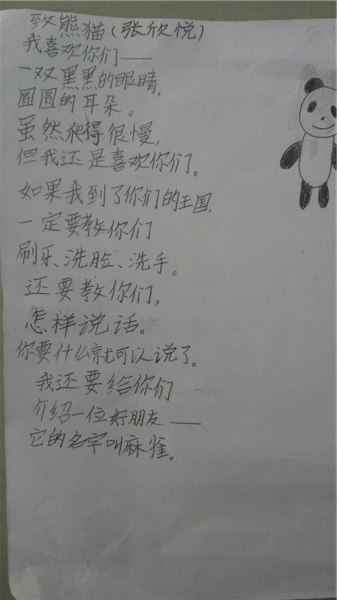 致熊猫(张欣悦)
我喜欢你们——
一双黑黑的眼睛,
圆圆的耳朵。
虽然爬得很慢,
但我还是喜欢你们。
如果我到了你们的王国,
一定要教你们
刷牙、洗脸、洗手。
还要教你们,
怎样说话。
你要什么就可以说了。
我还要给你们
介绍一位好朋友——
它的名字叫麻雀。